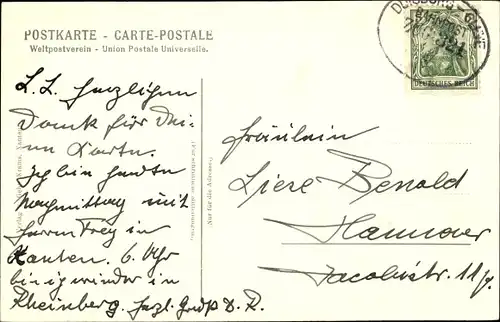 POSTKARTE - CARTE-POSTALE
Weltpostverein - Union Postale Universelle.
DUISBURG - CLEVE
BAHNPOST
DEUTSCHES REICH
L. L. Herzlichen
Dank für Dei-
ne Karte.
Ich bin heute
Nachmittag mit
Herrn Frey in
Xanten. 6 Uhr
bin ich wieder in
Rheinberg. Herzl. Gruß D. R.
Nur für die Adresse.
Fräulein
Liese Benold
Hannover
Jacobistr. 11